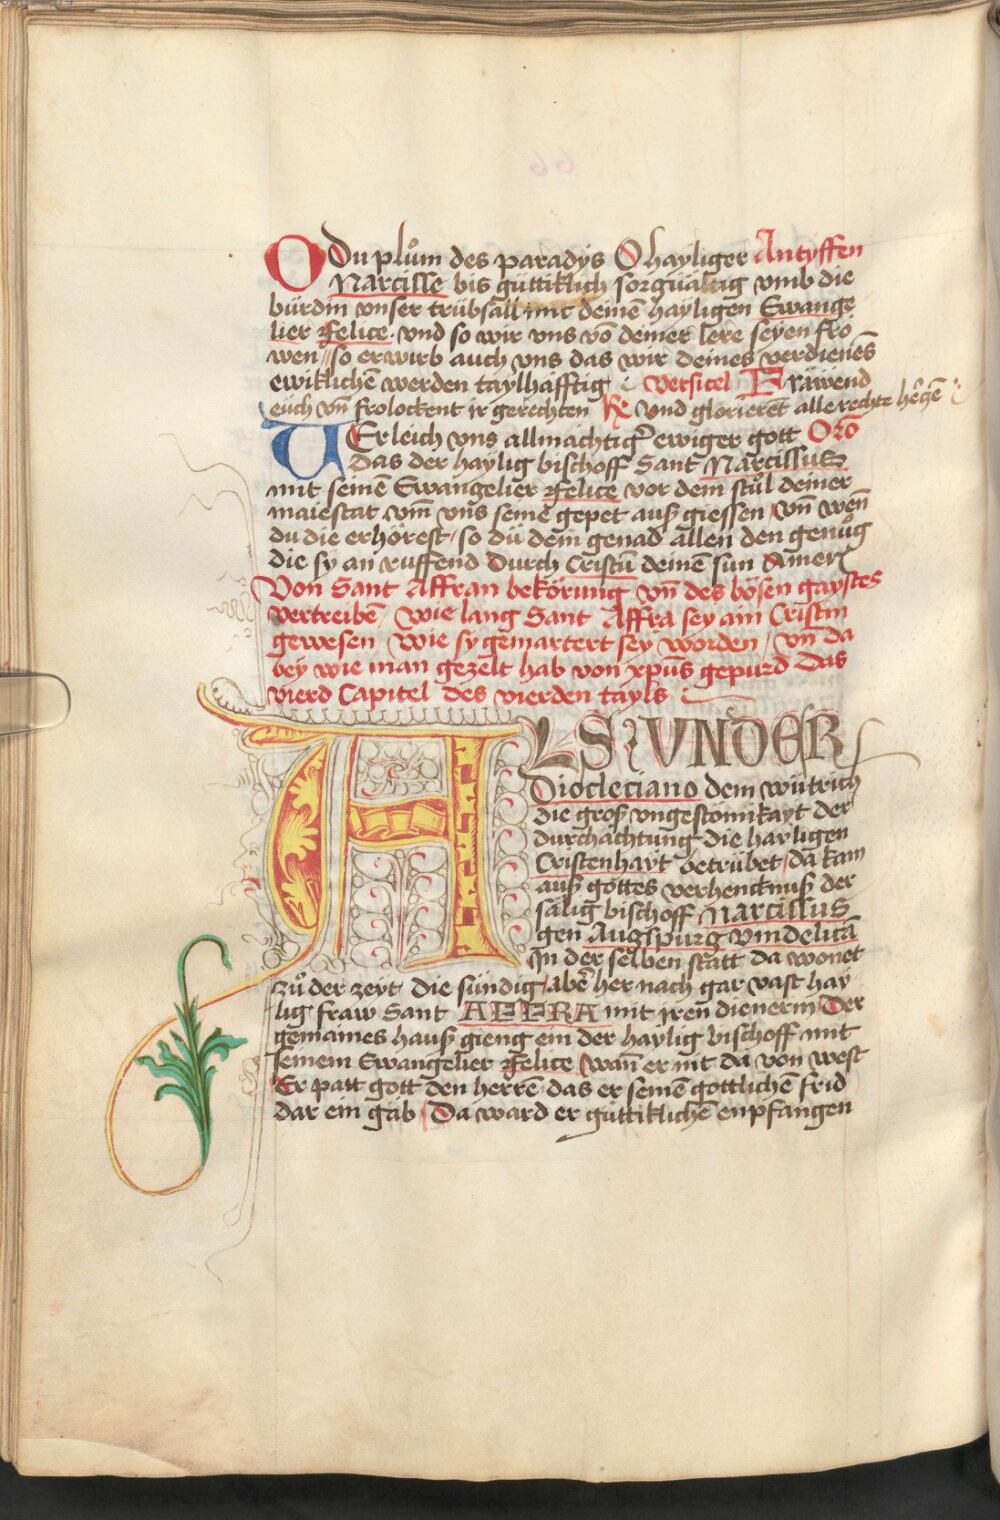 O Du plům des paradÿs O hayliger Antyffen
Narcisse bis gütticklich sorgüältig vmb die
bürdin vnser trübsall mit deinē hayligen Ewange
lier Felice · vnd so wir vns vō deiner lere seyen frö
wen / so erwirb auch vns das wir deines verdienēs
ewiklichē werden taylhafftig Versicel Eräwend
eüch vn̄ frolockent ir gerechten R vnd glorierēt alle rechte hꝰczē
VErleich vns allmächtigʼ ewiger gott Orō
das der haylig bischoff Sant Narcissus
mit seinē Ewangelier Felice vor dem stůl deiner
maiestat vm̄ vns seine gepet auß giessen / vn̄ wēn
du die erhörest / so dü dem genad allen den genůg
die sy an růffend Durch Cristū deinē sun Amen
Von Sant Affran bekörung vn̄ des bösen gaystes
vertreibē / wie lang Sant Affra sey ain Cristin
gewesen / Wie sy gemartert sey worden / vn̄ da
bey wie man gezelt hab von xp̄us gepurd Das
vierd Capitel des vierden tayls
ALS VNDER
Diocleciano dem wütrich
die groß vngestömikayt der
durchächtung die hayligen
Cristenhayt betrübet / da kam
auß gottes verhencknuß der
sälig bischoff Narcissus
gen Augspurg vindelicā
In der selben statt da wonet
zů der zeyt die sündig / abē her nach gar vast hay
lig fraw Sant AFFRA mit jren dienerin Der
gemaines hauß gieng ein der haylig bischoff mit
seinem Ewangelier Felice / wan̄ er nit da von west
Er patt gott den herrē das er seinē göttlichē frid
dar ein gäb / Da ward er güttiklichē enpfangen